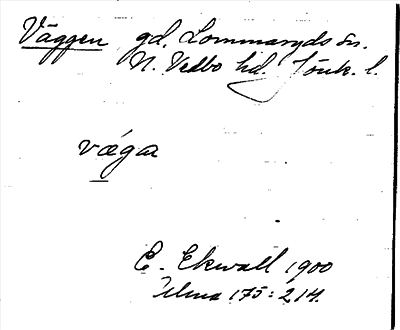 Väggen gd. Lommaryds sn.
N. Vedbo hd. Jönk. l.
vægar
E. Ekwall 1900
175: 214.